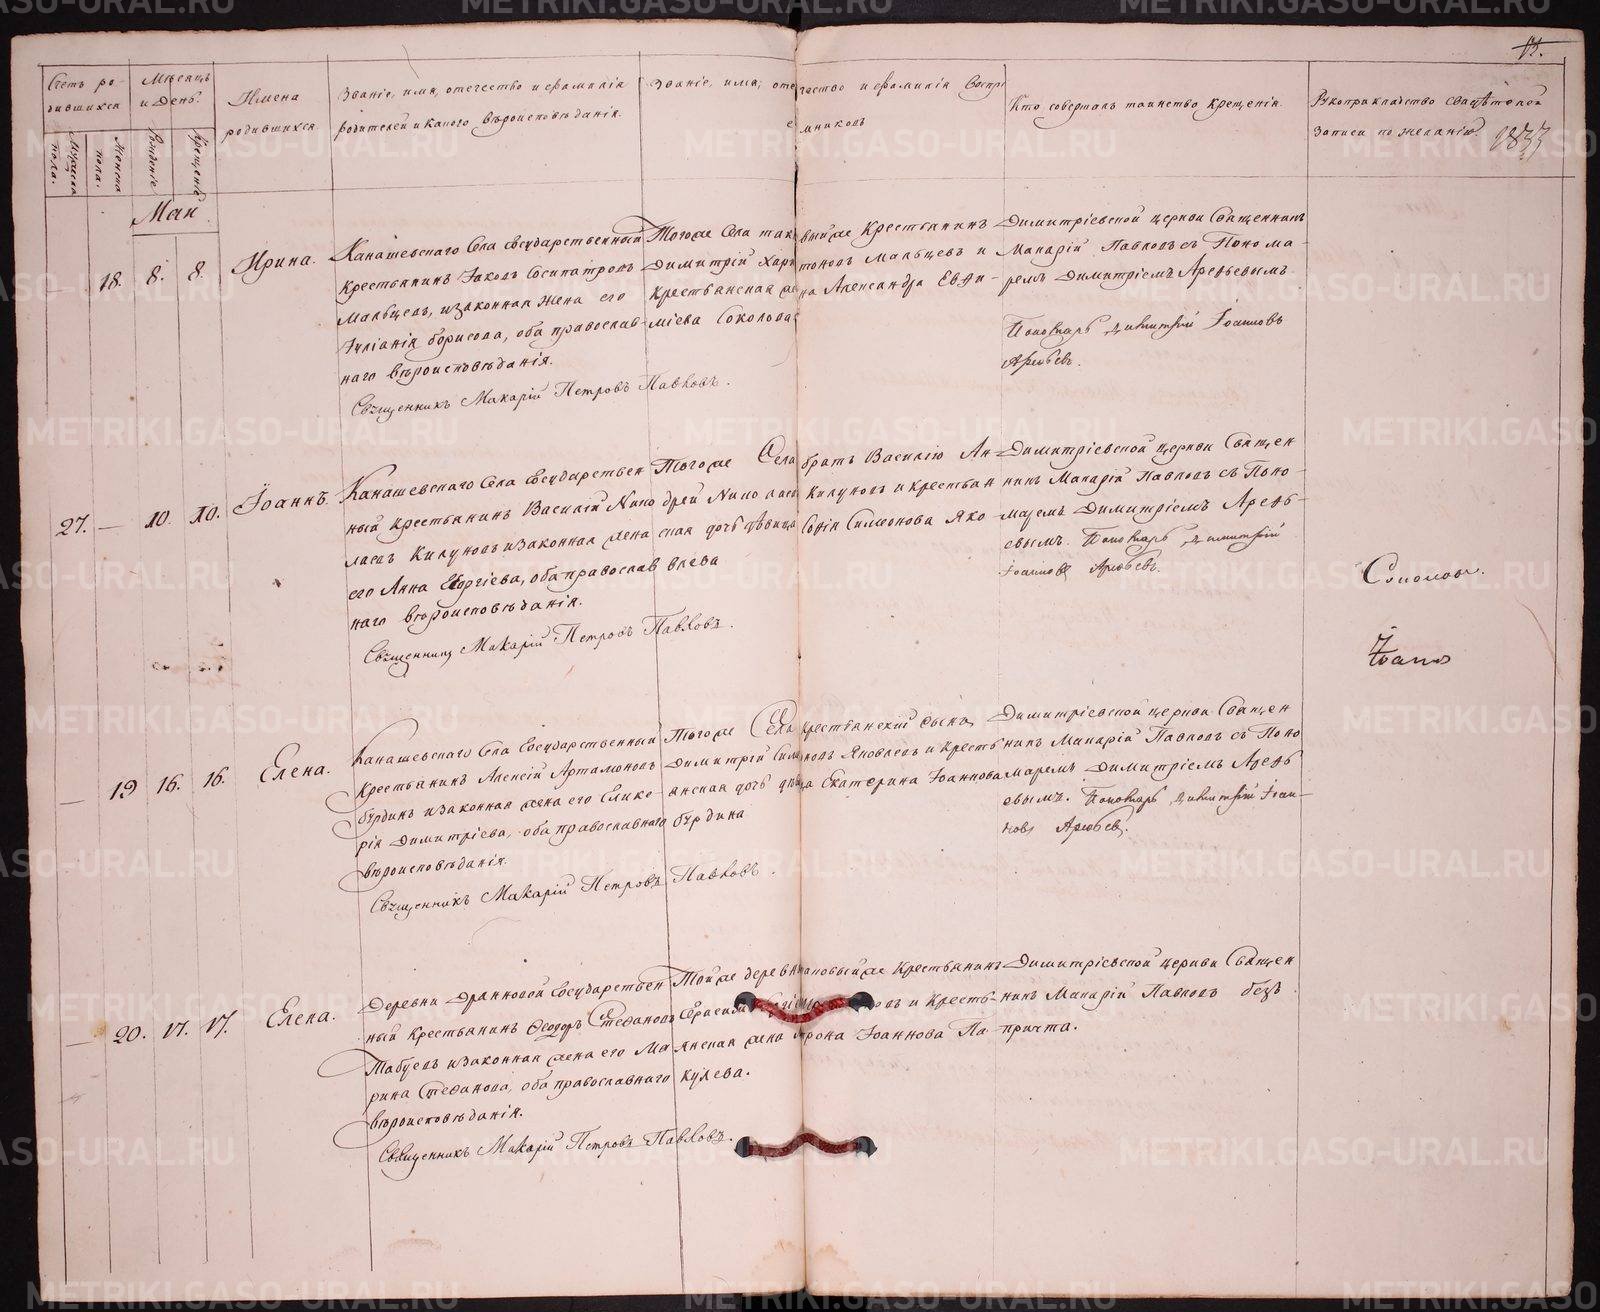 12.
Счетъ ро-
дившихся
Мужеска
пола.
Женска
пола.
Мѣсяцъ
и День.
Рожденіе
Крещеніе
Имена
родившихся.
Званіе, имя, отечество и фамилія
родителей и какого вѣроисповѣданія.
Званіе, имя, отечество и фамилія Воспріе
мниковъ
Кто совершалъ таинство крещенія.
Рукоприкладство свидѣтелей
записи по желанію.
1837
Маи
18. 8. 8.
Ирина.
Канашевскаго Села государственный
крестьянинъ Іаковъ Сосипатровъ
Мальцевъ, и законная жена его
Іуліанія борисова, оба православ-
наго вѣроисповѣданія.
Священникъ Макарій Петровъ Павловъ.
Тогоже Села таковыйже Крестьянинъ
Димитрій Харитоновъ Мальцевъ и
Крестьянская Александра Евфи-
міева Соколова
Димитріевской церкви Священникъ
Макарій Павловъ съ Понома-
ремъ Димитріемъ Арефьевымъ.
Пономарь Димитрій Іоанновъ
Арефьевъ.
27. — 10. 10.
Іоаннъ.
Канашевскаго Села государствен
ный крестьянинъ Василій Нико
лаевъ Килуновъ и законная жена
его Анна Георгіева, оба православ
наго вѣроисповѣданія.
Священникъ Макарій Петровъ Павловъ.
Тогоже Села братъ Василію Ан-
дрей Николаевъ Килуновъ и крестьян
ская дочь дѣвица Софія Симеонова Яко-
влева
Димитріевской церкви Священ
никъ Макарій Павловъ съ Поно-
маремъ Димитріемъ Арефь-
евымъ. Пономарь Димитрій
Іоанновъ Арефьевъ.
— 19 16. 16.
Елена.
Канашевскаго Села Государственный
Крестьянинъ Алексій Артамоновъ
бурдинъ и законная жена его Глике-
рія Димитріева, оба православнаго
вѣроисповѣданія.
Священникъ Макарій Петровъ Павловъ.
Тогоже Села Крестьянскій сынъ
Димитрій Симеоновъ Яковлевъ и Кресть
янская дочь дѣвица Екатерина Іоаннова
бурдина
Димитріевской церкви Священ
никъ Макарій Павловъ съ Поно
маремъ Димитріемъ Арефь
евымъ. Пономарь Димитрій Іоан-
новъ Арефьевъ.
— 20. 17. 17.
Елена.
Деревни Дранковой Государствен
ный Крестьянинъ Феодоръ Стефановъ
Табуевъ и законная жена его Ма
рина Стефанова, оба православнаго
вѣроисповѣданія.
Священникъ Макарій Петровъ Павловъ.
Тойже деревни таковыйже Крестьянинъ
и Кресть-
янская жена Іоаннова Па
кулева.
Димитріевской церкви Священ
никъ Макарій Павловъ безъ
причта.
METRIKI.GASO-URAL.RU